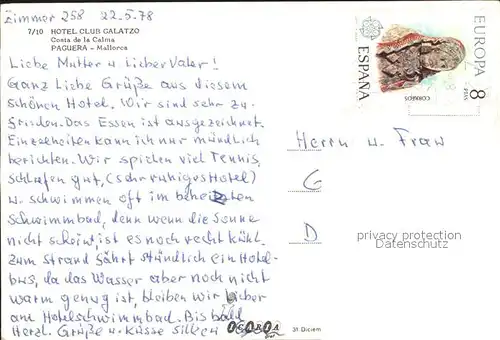 Zimmer 258 22-5-78
7/10 HOTEL CLUB GALATZO
Costa de la Calma
PAGUERA - Mallorca
Liebe Mutter u. Lieber Vater!
Ganz Liebe Grüße aus diesem
schönen Hotel. Wir sind sehr zu-
frieden. Das Essen ist ausgezeichnet.
Einzelheiten kann ich nur mündlich
berichten. Wir spielen viel Tennis,
schlafen gut, (sehr ruhiges Hotel)
u. schwimmen oft im beheizten
Schwimmbad, denn wenn die Sonne
nicht scheint, ist es noch recht kühl.
Zum Strand fährt stündlich ein Hotel-
bus, da das Wasser aber noch nicht
warm genug ist, bleiben wir lieber
am Hotelschwimmbad. Bis bald
Herzl. Grüße u. Küsse
EUROPA 8
PTAS
ESPAÑA
CORREOS
Herrn u. Frau
G
D
privacy protection
Datenschutz
31 Diciem